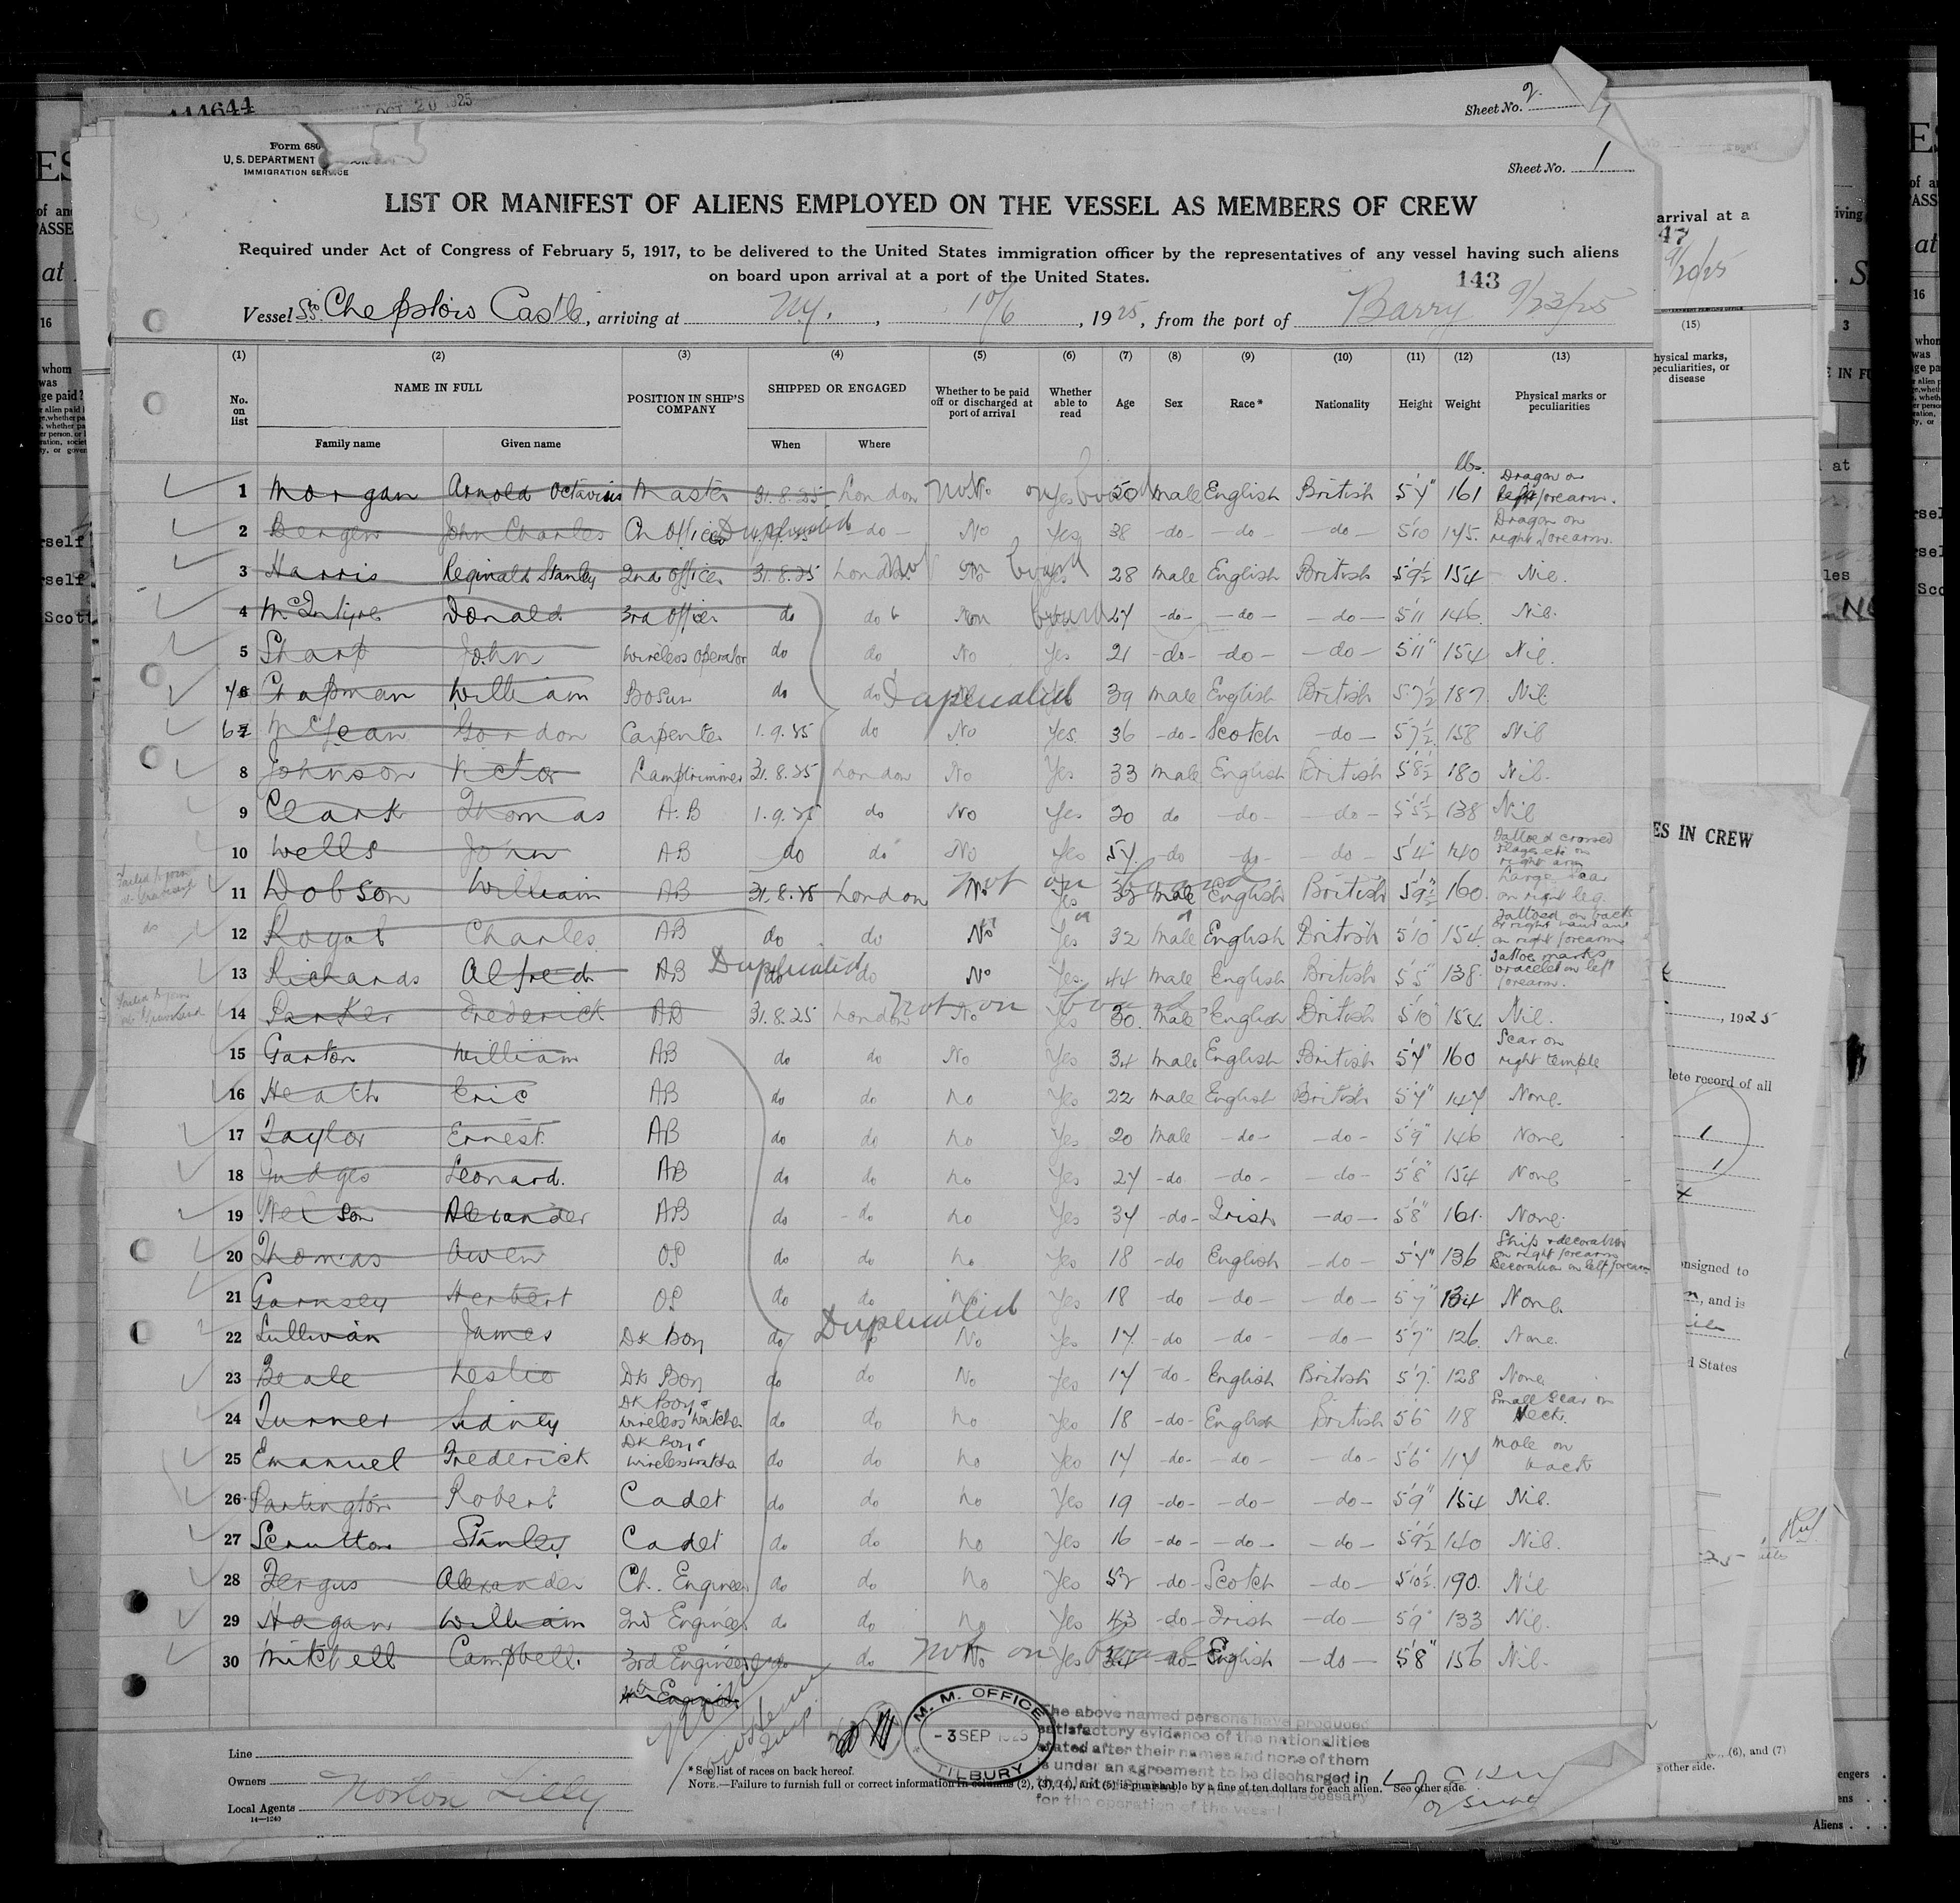 114644
OCT 20 1925
Sheet No. 2
Form 680
U. S. DEPARTMENT
IMMIGRATION SERVICE
Sheet No. 1
LIST OR MANIFEST OF ALIENS EMPLOYED ON THE VESSEL AS MEMBERS OF CREW
Required under Act of Congress of February 5, 1917, to be delivered to the United States immigration officer by the representatives of any vessel having such aliens
on board upon arrival at a port of the United States.
143
Vessel SS. Chepstow Castle, arriving at N.Y., 10/6, 1925, from the port of Barry 9/23/25
(1) (2) (3) (4) (5) (6) (7) (8) (9) (10) (11) (12) (13)
No. on list NAME IN FULL POSITION IN SHIP'S COMPANY SHIPPED OR ENGAGED Whether to be paid off or discharged at port of arrival Whether able to read Age Sex Race* Nationality Height Weight Physical marks or peculiarities
Family name Given name When Where
lbs.
1 Morgan Arnold Octavius Master 31.8.25 London No Yes 50 Male English British 5'7" 161 Dragon on forearm.
2 Bergen John Charles Ch Officer do No Yes 38 do do do 5'10 145 Dragon on right forearm.
Duplicated
3 Harris Reginald Stanley 2nd Officer 31.8.25 London No Yes 28 Male English British 5'9½ 154 Nil.
Not on board
4 McIntyre Donald 3rd Officer do do 27 do do do 5'11 146 Nil.
5 Sharp John Wireless Operator do do No Yes 21 do do do 5'11" 154 Nil.
7 Chapman William Bosun do do 39 Male English British 5'7½ 187 Nil
Duplicated
6 McLean Gordon Carpenter 1.9.25 do No Yes 36 do Scotch do 5'7½ 158 Nil
8 Johnson Victor Lamptrimmer 31.8.25 London No Yes 33 Male English British 5'8½ 180 Nil.
9 Clark Thomas A.B 1.9.25 do No Yes 20 do do do 5'5½ 138 Nil
10 Wells John AB do do No Yes 54 do do do 5'4" 140 Tattoed crossed flags etc on right arm
11 Dobson William AB 31.8.25 London No Yes 32 Male English British 5'9½ 160 Large scar on right leg.
Not on board
Failed to join at Gravesend
12 Royal Charles AB do do No Yes 32 Male English British 5'10 154 Tattoed on back of right hand and on right forearm
do
13 Richards Alfred AB do do No Yes 44 Male English British 5'5" 138 Tattoo marks bracelet on left forearm.
Duplicated
14 Parker Frederick AB 31.8.25 London No Yes 30 Male English British 5'10 154 Nil.
Not on board
Failed to join at Gravesend
15 Garton William AB do do No Yes 34 Male English British 5'7" 160 Scar on right temple
16 Heath Eric AB do do No Yes 22 Male English British 5'7" 147 None.
17 Taylor Ernest AB do do No Yes 20 Male do do 5'9" 146 None
18 Judges Leonard. AB do do No Yes 27 do do do 5'8" 154 None
19 Nelson Alexander AB do do No Yes 34 do Irish do 5'8" 161 None.
20 Thomas Owen OS do do No Yes 18 do English do 5'7" 136 Ship & decoration on right forearm Decoration on left forearm
21 Garnsey Herbert OS do do No Yes 18 do do do 5'7" 134 None.
Duplicated
22 Sullivan James Dk Boy do do No Yes 17 do do do 5'7" 126 None.
23 Beale Leslie Dk Boy do do No Yes 17 do English British 5'7" 128 None
24 Turner Sidney Dk Boy & wireless watcher do do No Yes 18 do English British 5'6 118 Small scar on Neck.
25 Emanuel Frederick Dk Boy & wireless watcher do do No Yes 17 do do do 5'6 117 Mole on back
26 Partington Robert Cadet do do No Yes 19 do do do 5'9" 154 Nil.
27 Scrutton Stanley Cadet do do No Yes 16 do do do 5'9½ 140 Nil.
28 Fergus Alexander Ch. Engineer do do No Yes 52 do Scotch do 5'10½ 190 Nil
29 Hagan William 2nd Engineer do do No Yes 43 do Irish do 5'9" 133 Nil.
30 Mitchell Campbell. 3rd Engineer do do No Yes 34 do English do 5'8" 156 Nil.
Not on board
Line
Owners
Local Agents Norton Lilly
14—1240
M. M. OFFICE
-3 SEP 1925
TILBURY
The above named persons have produced
satisfactory evidence of the nationalities
stated after their names and none of them
is under an agreement to be discharged in
for the operation of the vessel
* See list of races on back hereof.
NOTE.—Failure to furnish full or correct information in columns (2), (3), (4), and (5) is punishable by a fine of ten dollars for each alien. See other side.
arrival at a
47
9/20/25
(15)
physical marks,
peculiarities, or
disease
ES IN CREW
, 1925
lete record of all
1
1
onsigned to
n, and is
d States
(6), and (7)
other side.
Aliens